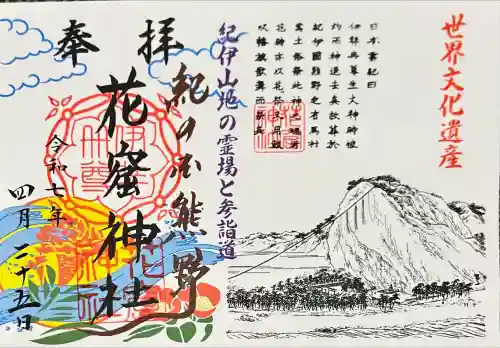 世界文化遺産
日本書紀曰
伊弉冉尊生火神時被
灼而神退去矣故葬於
紀伊國熊野之有馬村
焉土俗祭此神之魂者
花時亦以花祭又用鼓
吹幡旗歌舞而祭矣
紀伊山地の霊場と参詣道
紀の国熊野
奉拝
花窟神社
令和七年
四月二十五日